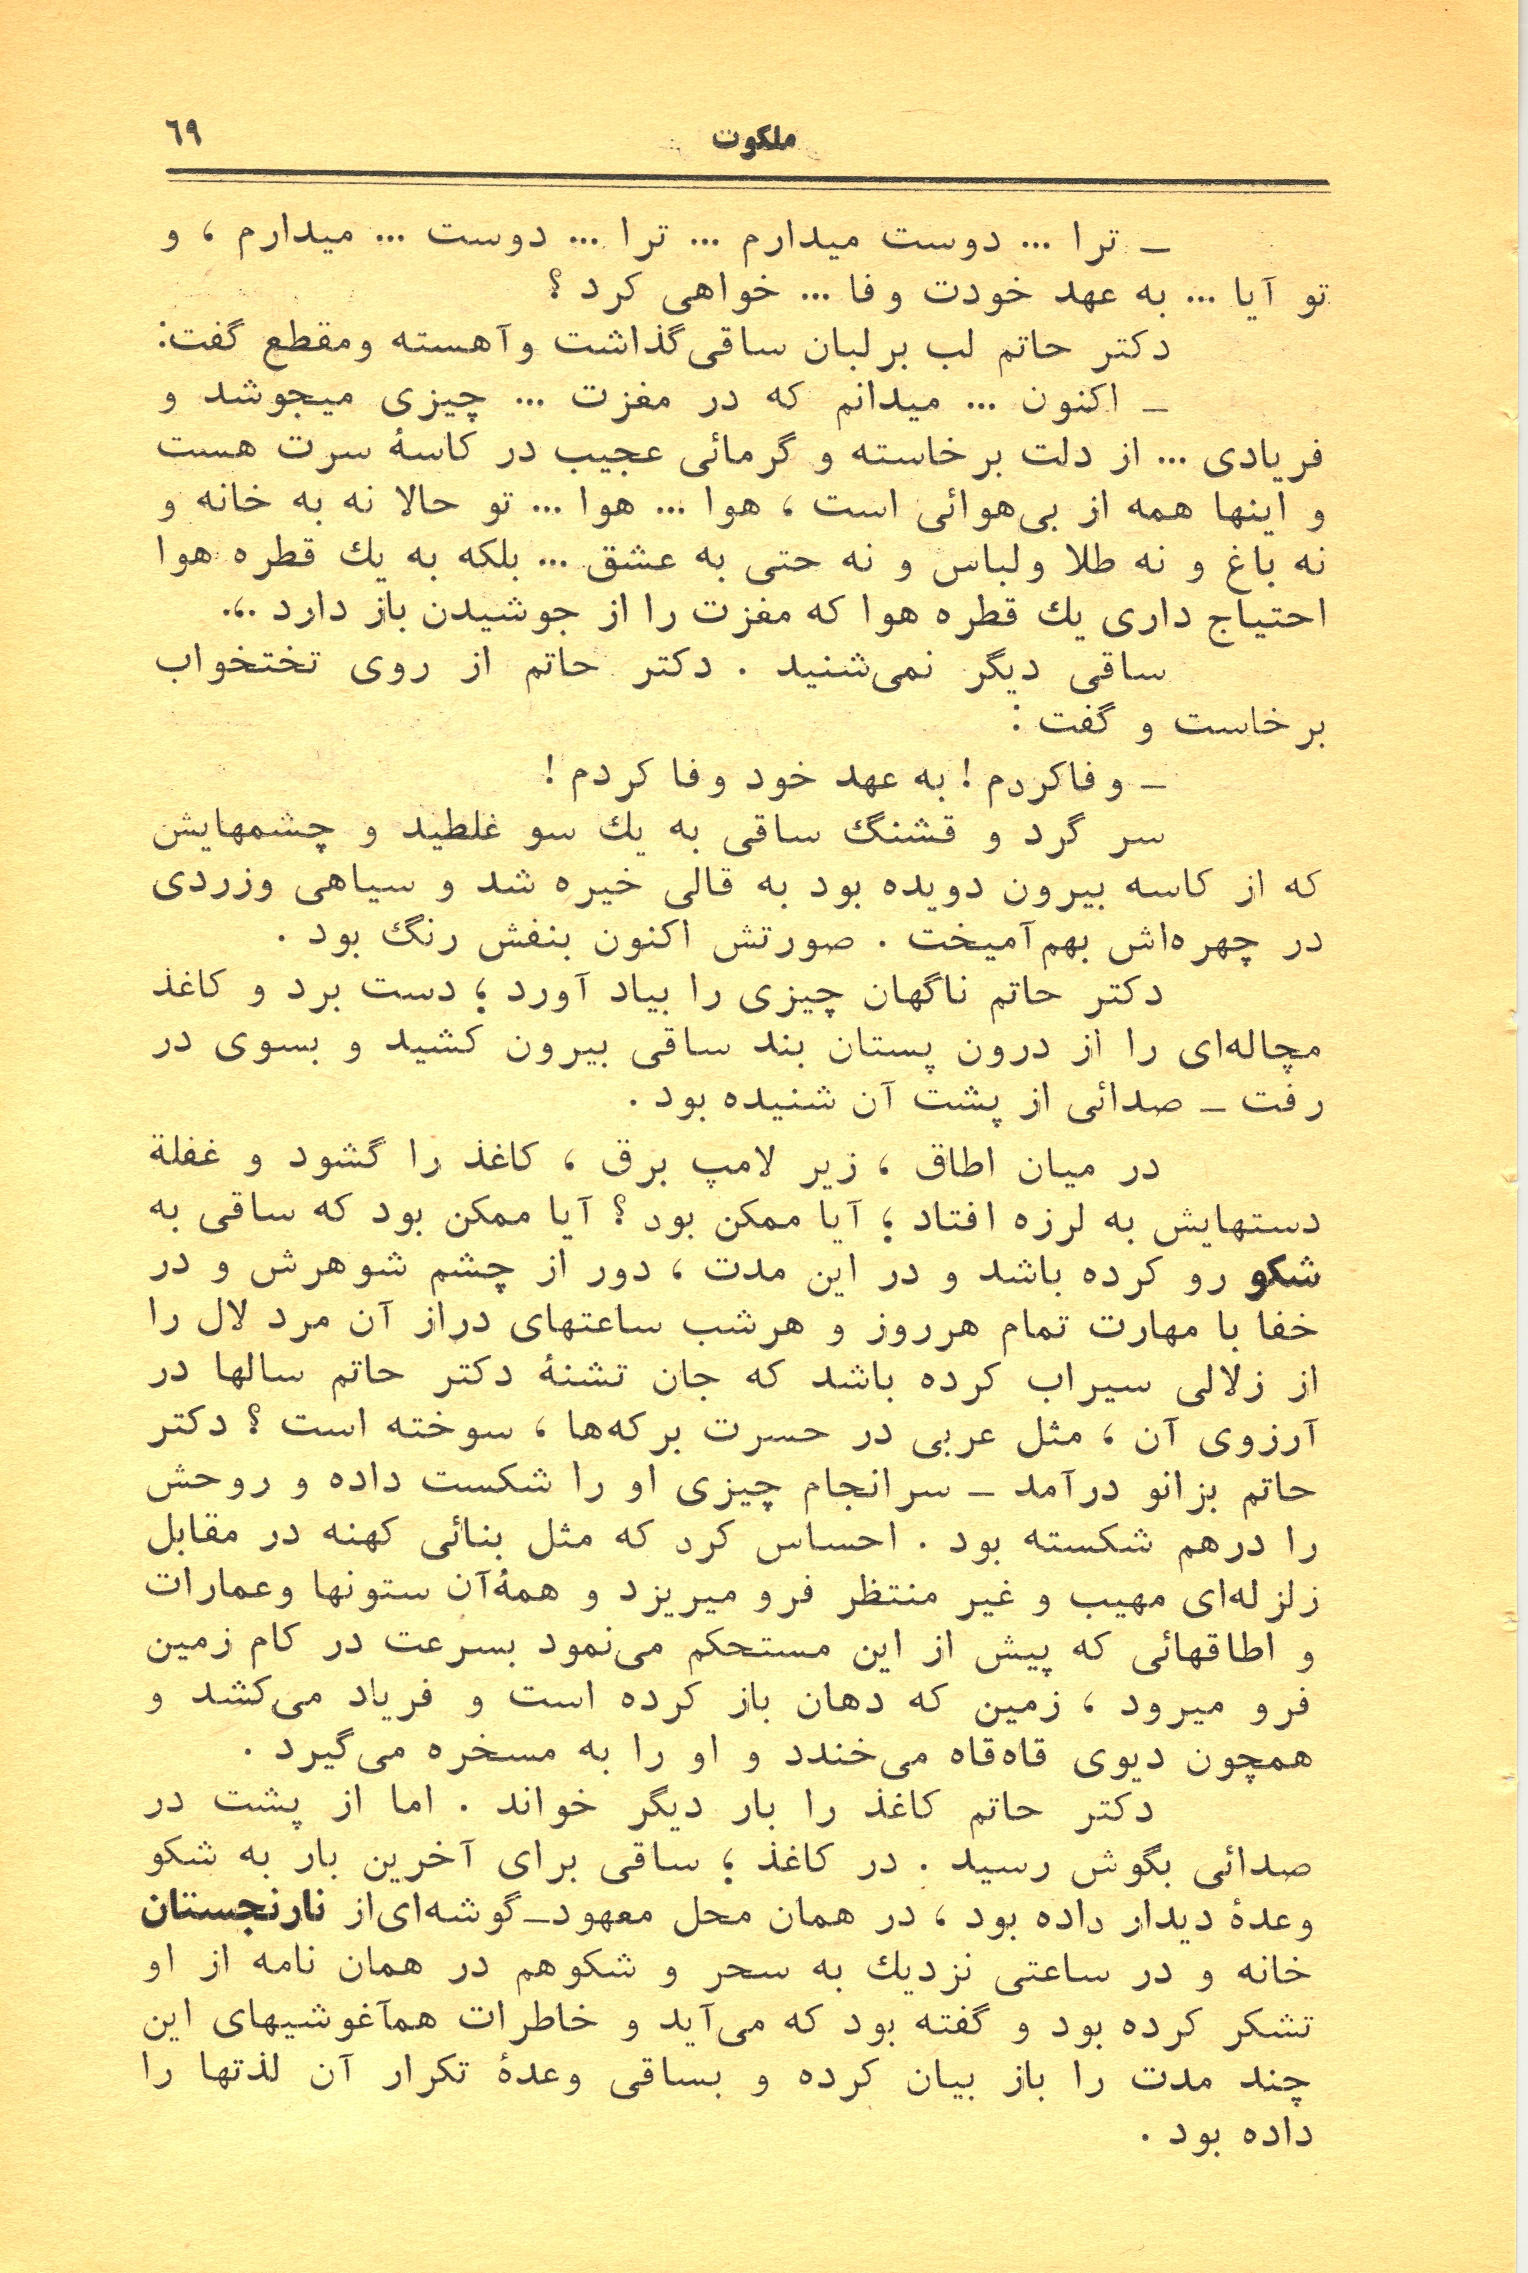 ملكوت
٦٩
ـ ترا ... دوست میدارم ... ترا ... دوست ... میدارم ، و
تو آیا ... به عهد خودت وفا ... خواهی کرد ؟
دکتر حاتم لب برلبان ساقی‌گذاشت وآهسته ومقطع گفت:
ـ اکنون ... میدانم که در مغزت ... چیزی میجوشد و
فریادی ... از دلت برخاسته و گرمائی عجیب در کاسهٔ سرت هست
و اینها همه از بی‌هوائی است ، هوا ... هوا ... تو حالا نه به خانه و
نه باغ و نه طلا ولباس و نه حتی به عشق ... بلکه به یك قطره هوا
احتیاج داری یك قطره هوا که مغزت را از جوشیدن باز دارد ...
ساقی دیگر نمی‌شنید . دکتر حاتم از روی تختخواب
برخاست و گفت :
ـ وفاکردم ! به عهد خود وفا کردم !
سر گرد و قشنگ ساقی به یك سو غلطید و چشمهایش
که از کاسه بیرون دویده بود به قالی خیره شد و سیاهی وزردی
در چهره‌اش بهم‌آمیخت . صورتش اکنون بنفش رنگ بود .
دکتر حاتم ناگهان چیزی را بیاد آورد ؛ دست برد و کاغذ
مچاله‌ای را از درون پستان بند ساقی بیرون کشید و بسوی در
رفت ـ صدائی از پشت آن شنیده بود .
در میان اطاق ، زیر لامپ برق ، کاغذ را گشود و غفلة
دستهایش به لرزه افتاد ؛ آیا ممکن بود ؟ آیا ممکن بود که ساقی به
شکو رو کرده باشد و در این مدت ، دور از چشم شوهرش و در
خفا با مهارت تمام هرروز و هرشب ساعتهای دراز آن مرد لال را
از زلالی سیراب کرده باشد که جان تشنهٔ دکتر حاتم سالها در
آرزوی آن ، مثل عربی در حسرت برکه‌ها ، سوخته است ؟ دکتر
حاتم بزانو درآمد ـ سرانجام چیزی او را شکست داده و روحش
را درهم شکسته بود . احساس کرد که مثل بنائی کهنه در مقابل
زلزله‌ای مهیب و غیر منتظر فرو میریزد و همهٔ‌آن ستونها وعمارات
و اطاقهائی که پیش از این مستحکم می‌نمود بسرعت در کام زمین
فرو میرود ، زمین که دهان باز کرده است و فریاد می‌کشد و
همچون دیوی قاه‌قاه می‌خندد و او را به مسخره می‌گیرد .
دکتر حاتم کاغذ را بار دیگر خواند . اما از پشت در
صدائی بگوش رسید . در کاغذ ؛ ساقی برای آخرین بار به شکو
وعدهٔ دیدار داده بود ، در همان محل معهود ـ گوشه‌ای‌از نارنجستان
خانه و در ساعتی نزدیك به سحر و شکوهم در همان نامه از او
تشکر کرده بود و گفته بود که می‌آید و خاطرات همآغوشیهای این
چند مدت را باز بیان کرده و بساقی وعدهٔ تکرار آن لذتها را
داده بود .